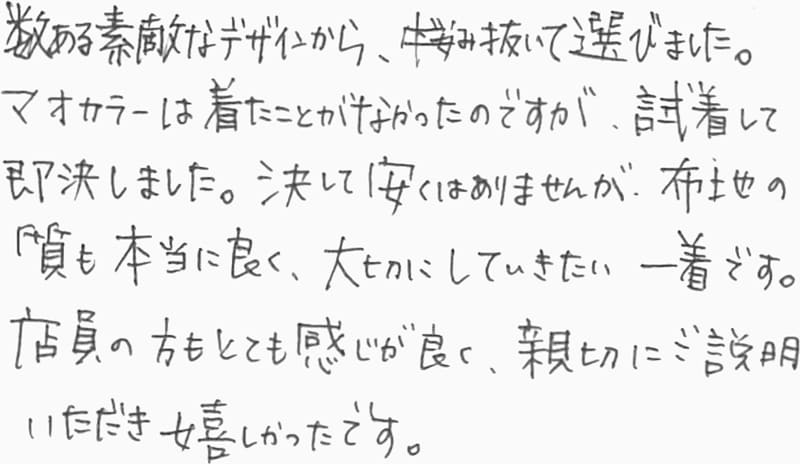 数ある素敵なデザインから、悩み抜いて選びました。
マオカラーは着たことがなかったのですが、試着して
即決しました。決して安くはありませんが、布地の
質も本当に良く、大切にしていきたい一着です。
店員の方もとても感じが良く、親切にご説明
いただき嬉しかったです。